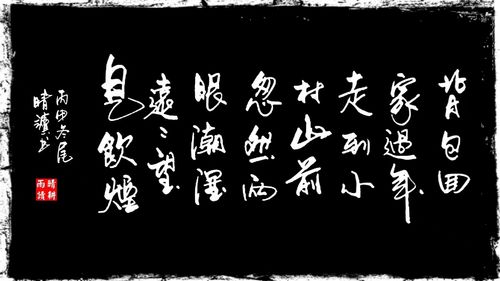 背包回
家過年
走到小
村山前
忽然兩
眼潮濕
遠〻望
見飲煙
丙申冬尾
晴書
晴耕
雨讀